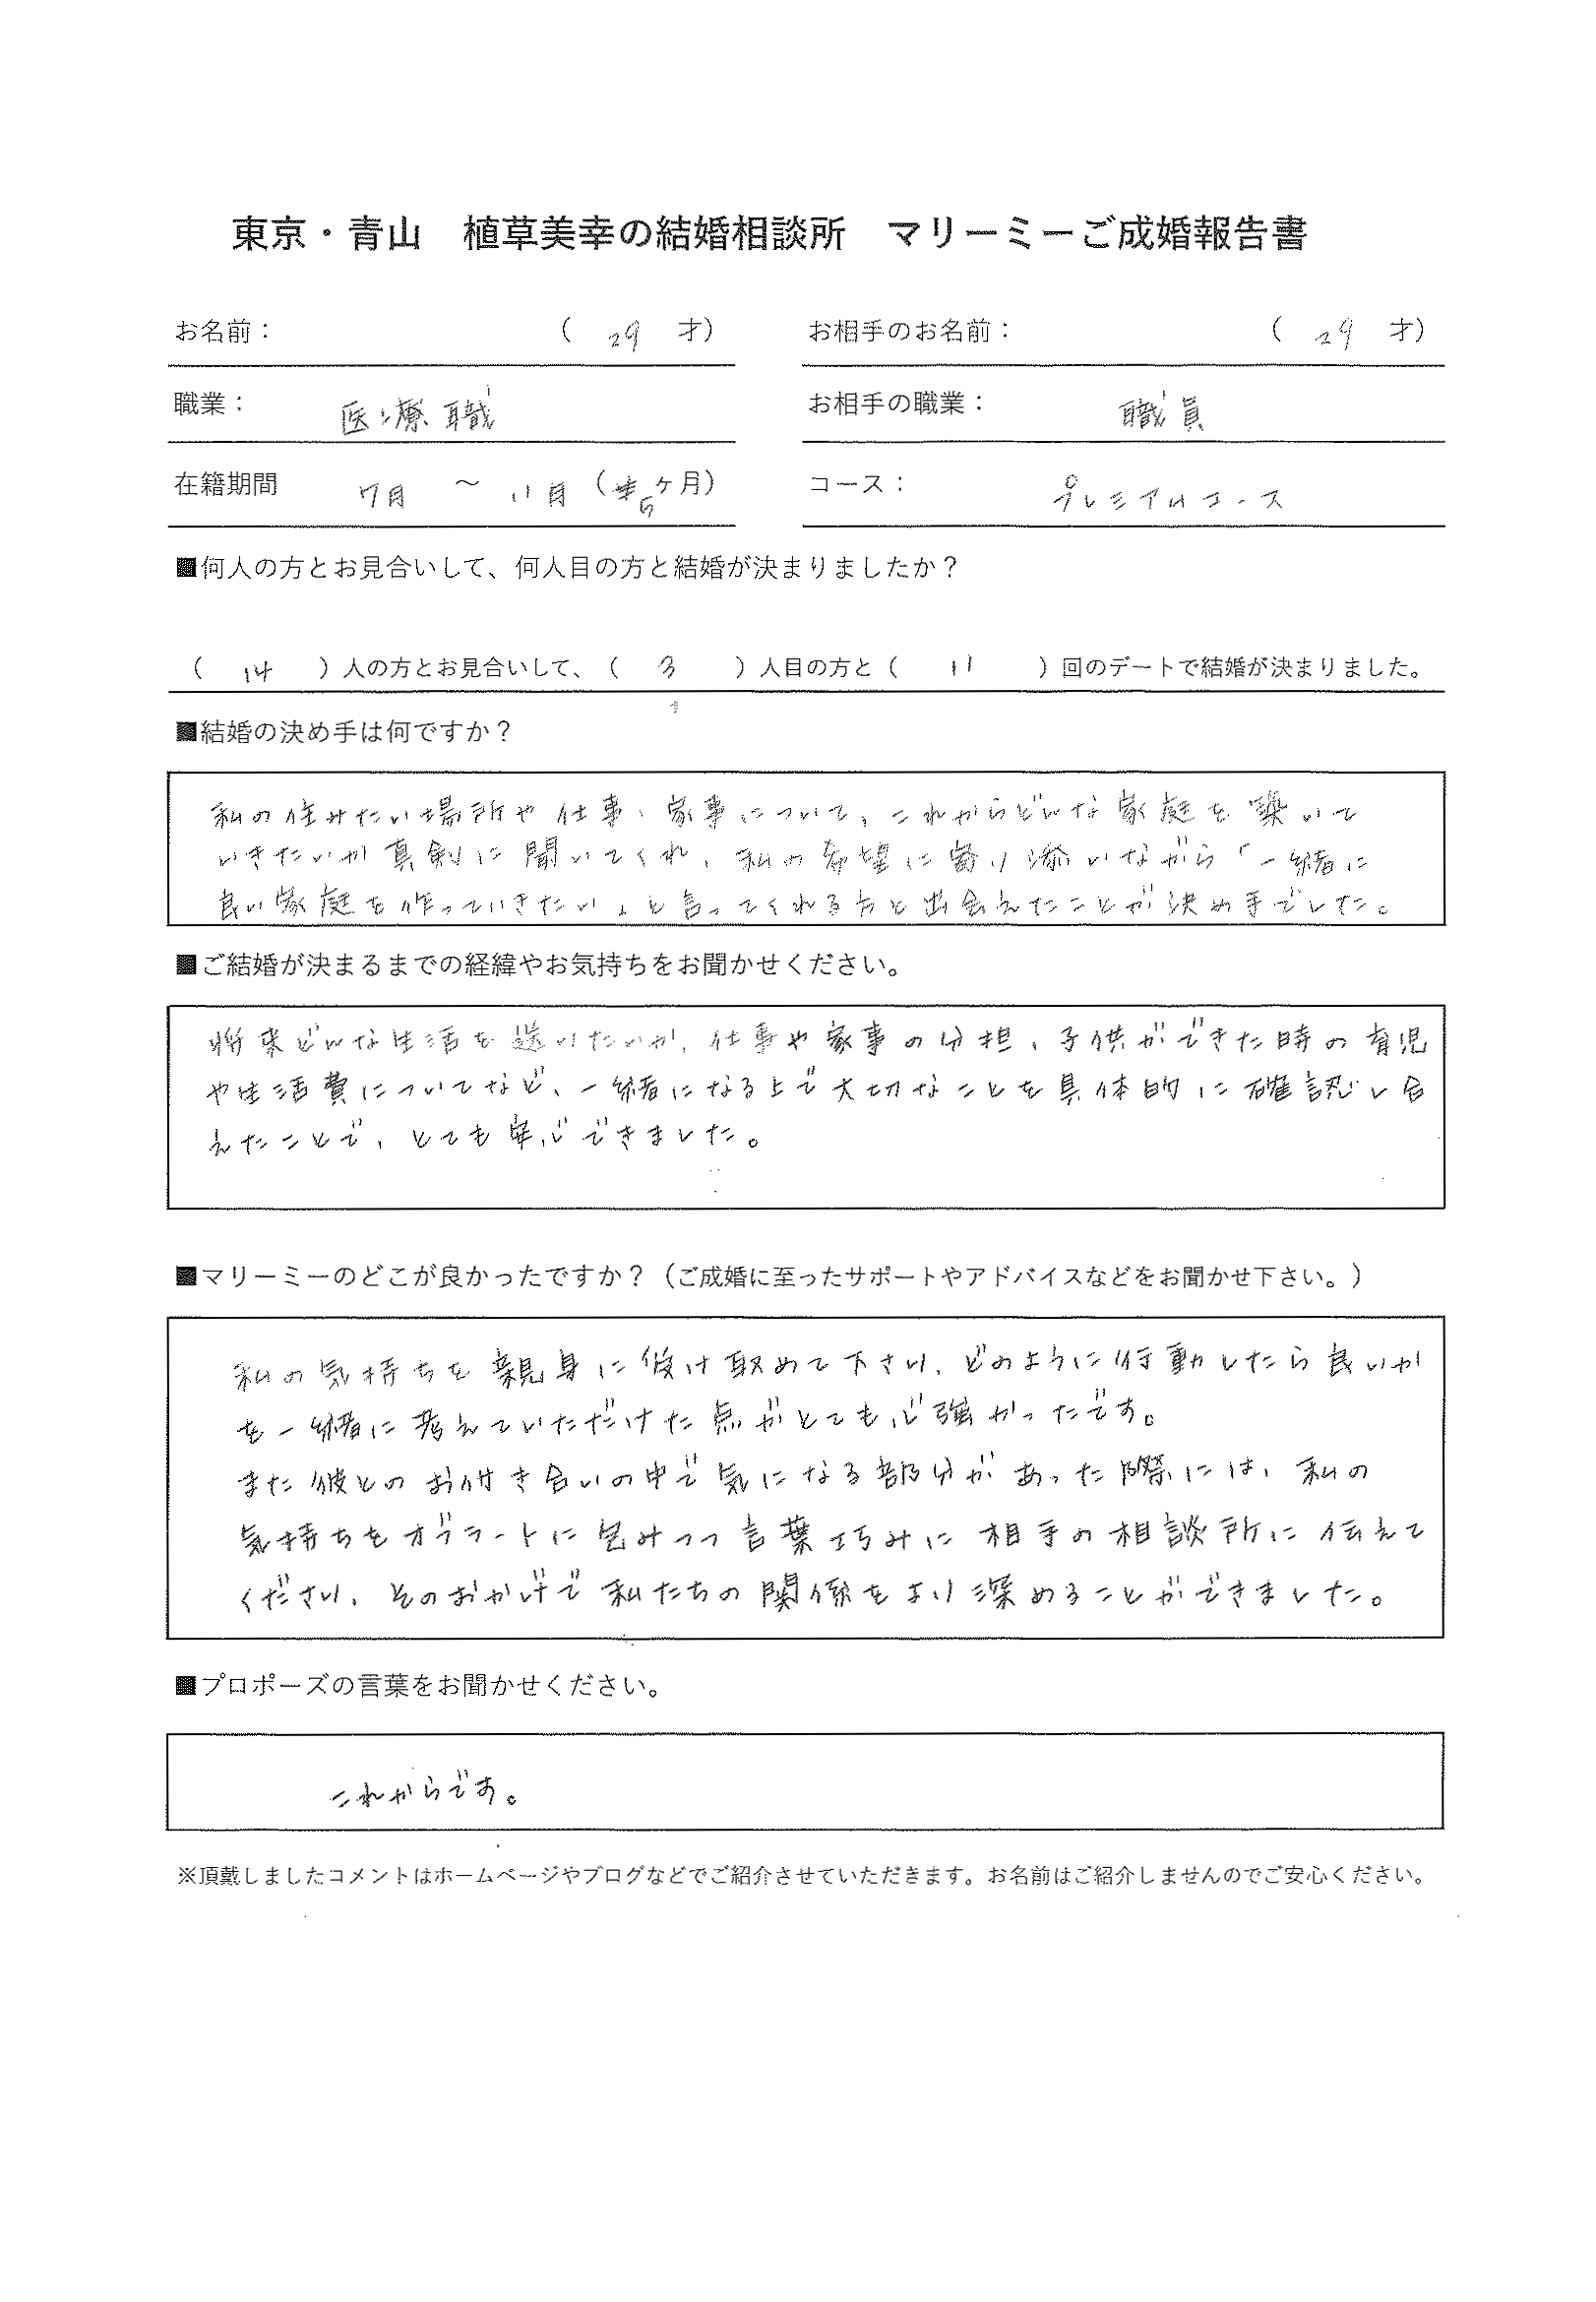 東京・青山　植草美幸の結婚相談所　マリーミーご成婚報告書
お名前：　（ 29 才）　お相手のお名前：　（ 29 才）
職業：　医療職　お相手の職業：　職員
在籍期間　7月 ～ 11月（5ヶ月）　コース：　プレミアムコース
■何人の方とお見合いして、何人目の方と結婚が決まりましたか？
（ 14 ）人の方とお見合いして、（ 3 ）人目の方と（ 11 ）回のデートで結婚が決まりました。
■結婚の決め手は何ですか？
私の住みたい場所や仕事、家事について、これからどんな家庭を築いて
いきたいか真剣に聞いてくれ、私の希望に寄り添いながら「一緒に
良い家庭を作っていきたい」と言ってくれる方と出会えたことが決め手でした。
■ご結婚が決まるまでの経緯やお気持ちをお聞かせください。
将来どんな生活を送りたいか、仕事や家事の分担、子供ができた時の育児
や生活費についてなど、一緒になる上で大切なことを具体的に確認し合
えたことで、とても安心できました。
■マリーミーのどこが良かったですか？（ご成婚に至ったサポートやアドバイスなどをお聞かせ下さい。）
私の気持ちを親身に受け取めて下さり、どのように行動したら良いか
を一緒に考えていただけた点がとても心強かったです。
また彼とのお付き合いの中で気になる部分があった際には、私の
気持ちをオブラートに包みつつ言葉巧みに相手の相談所に伝えて
くださり、そのおかげで私たちの関係をより深めることができました。
■プロポーズの言葉をお聞かせください。
これからです。
※頂戴しましたコメントはホームページやブログなどでご紹介させていただきます。お名前はご紹介しませんのでご安心ください。